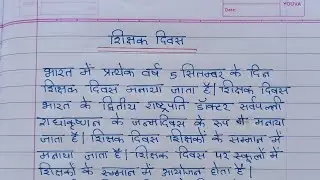 शिक्षक दिवस
भारत में प्रत्येक वर्ष 5 सितम्बर के दिन
शिक्षक दिवस मनाया जाता है| शिक्षक दिवस
भारत के द्वितीय राष्ट्रपति डॉक्टर सर्वपल्ली
राधाकृष्णन के जन्मदिवस के रूप में मनाया
जाता है| शिक्षक दिवस शिक्षकों के सम्मान में
मनाया जाता है| शिक्षक दिवस पर स्कूलों में
शिक्षकों के सम्मान में आयोजन होता है|